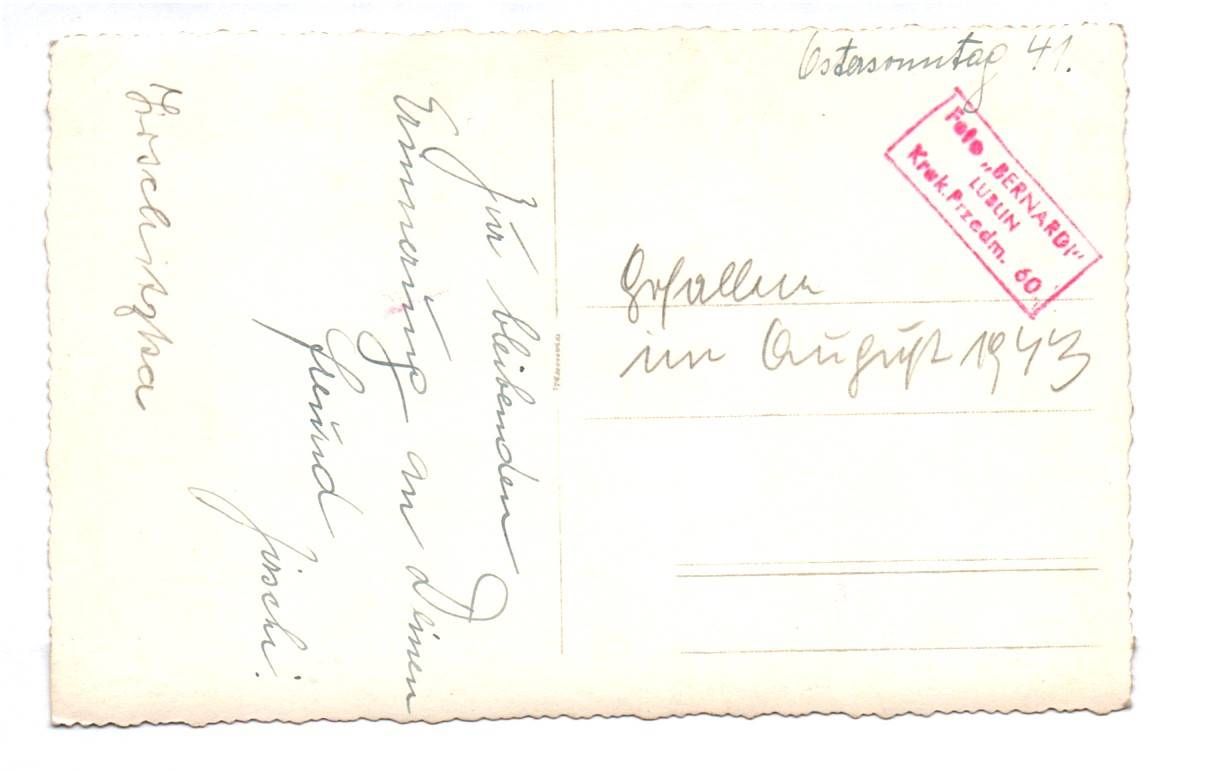 Ostersonntag 41.
Foto „BERNARDI"
LUBLIN
Krak. Przedm. 60
Gefallen
im August 1943
Zur bleibenden
Erinnerung an Deinen
Freund
Jirschi.
Jirschitzka